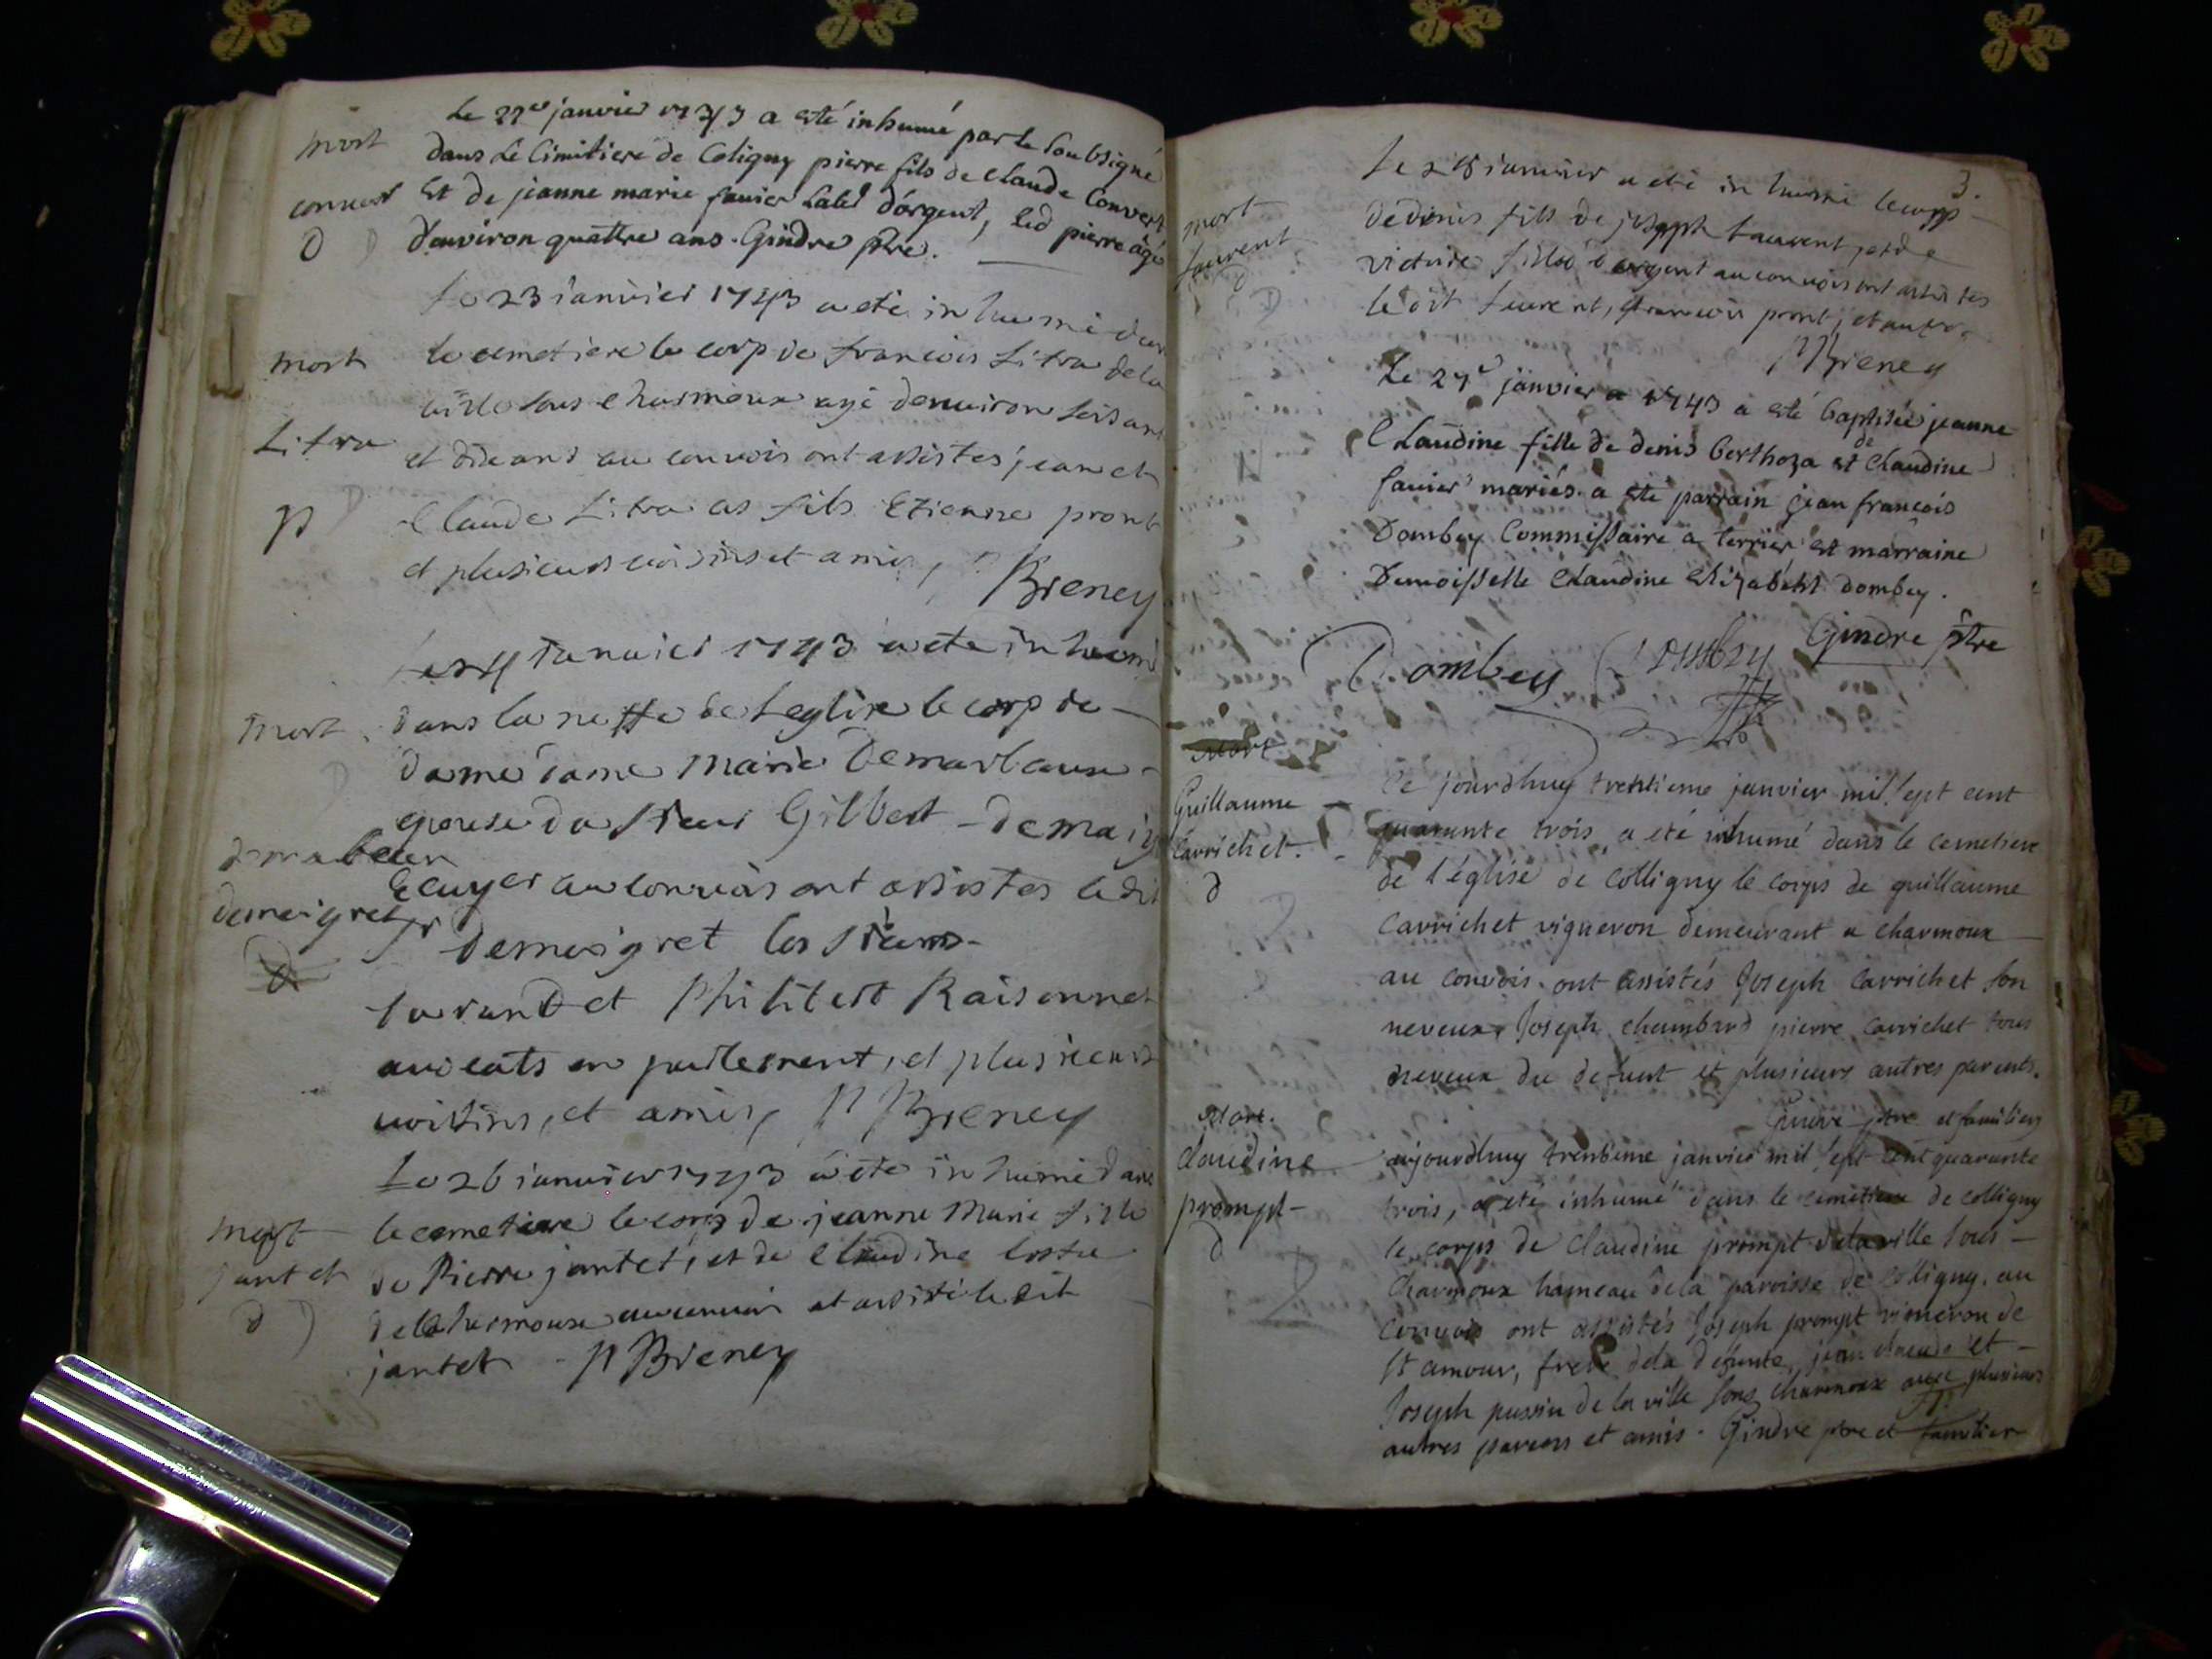 mort
convert
Le 22e janvier 1743 a esté inhumé par le soubsigné
dans Le Cimitiere de Coligny pierre fils de Claude Convert
Et de jeanne marie favier Labé d'orgent, led pierre âgé
d'environ quattre ans. Gindre ptre.
mort
Litra
Le 23 ianvier 1743 a eté inhumé dans
le cemetiere le corp de francois Litra de la
ville sous charmoux agé denuiron soisant
et dix ans au conuois ont assistes jean et
Claude Litra as fils Etienne pront
et plusieurs uoisins et amis, P Breney
mort
demoigret
Le 24 ianuier 1743 a ete inhumé
dans la neffe de Leglise le corp de
dame dame Marie Demarbeaux
epouse du sieur Gilbert de
Ecuyer au conuois ont assistes ledit
Sr Demoigret les sieurs
et Philibert Raisonnet
auocats en parlement, et plusieurs
uoisins, et amis, P Breney
mort
jantet
Le 26 ianuier 1743 a eté inhumé dans
le cemetiere le corp de jeanne Marie fille
de Pierre jantet, et de Claudine
de Charmoux au conuoi at assisté ledit
jantet P Breney
3.
mort
laurent
Le 28 ianuier a eté inhumé le corp
de denis fils de joseph Laurent, et de
victoire au conuois ont assistes
ledit Laurent, francois pront, et autre
P Breney
Le 29e janvier a 1743 a esté baptisée jeanne
Claudine fille de denis berthoza et de Claudine
favier mariés. a esté parrain jean francois
Dombey Commissaire a terrier et marraine
Demoisselle Claudine Elizabeht dombey.
Dombey Dombey Gindre ptre
Mort
Guillaume
Carrichet.
Ce jourdhuy trentieme janvier mil sept cent
quarante trois, a eté inhumé dans le cemetiere
de l'église de colligny le corps de guillaume
Carrichet vigneron demeurant a charmoux
au convois ont assistés Joseph Carrichet son
neveux Joseph chambard pierre carrichet tous
neveux du defunt et plusieurs autres parents.
Gindre ptre et familier
Mort.
claudine
prompt
aujourdhuy trentieme janvier mil sept cent quarante
trois, a eté inhumé dans le cemitiere de colligny
le corps de claudine prompt de la ville sous
charmoux hameau de la paroisse de colligny. au
convois ont assistés Joseph prompt vigneron de
St amour, frere de la defunte, jean claude et
Joseph de la ville sous charmoux avec plusieurs
autres parens et amis. Gindre ptre et familier